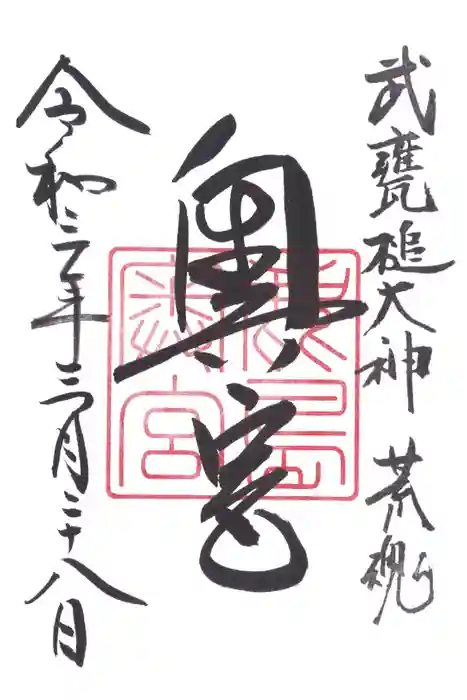 武甕槌大神 荒魂
奥宮
鹿島神宮
令和二年三月二十八日